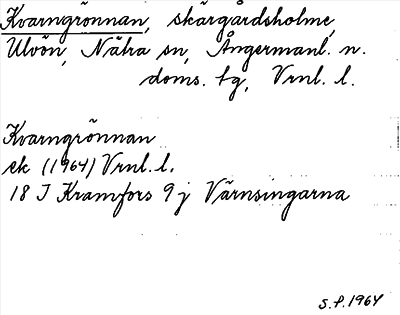 Kvarngrönnan, skärgårdsholme,
Ulvön, Nätra sn, Ångermanl. n.
doms. tg, Vrnl. l.
Kvarngrönnan
ek (1964) Vrnl. l.
18 I Kramfors 9 j Värnsingarna
S.P. 1964